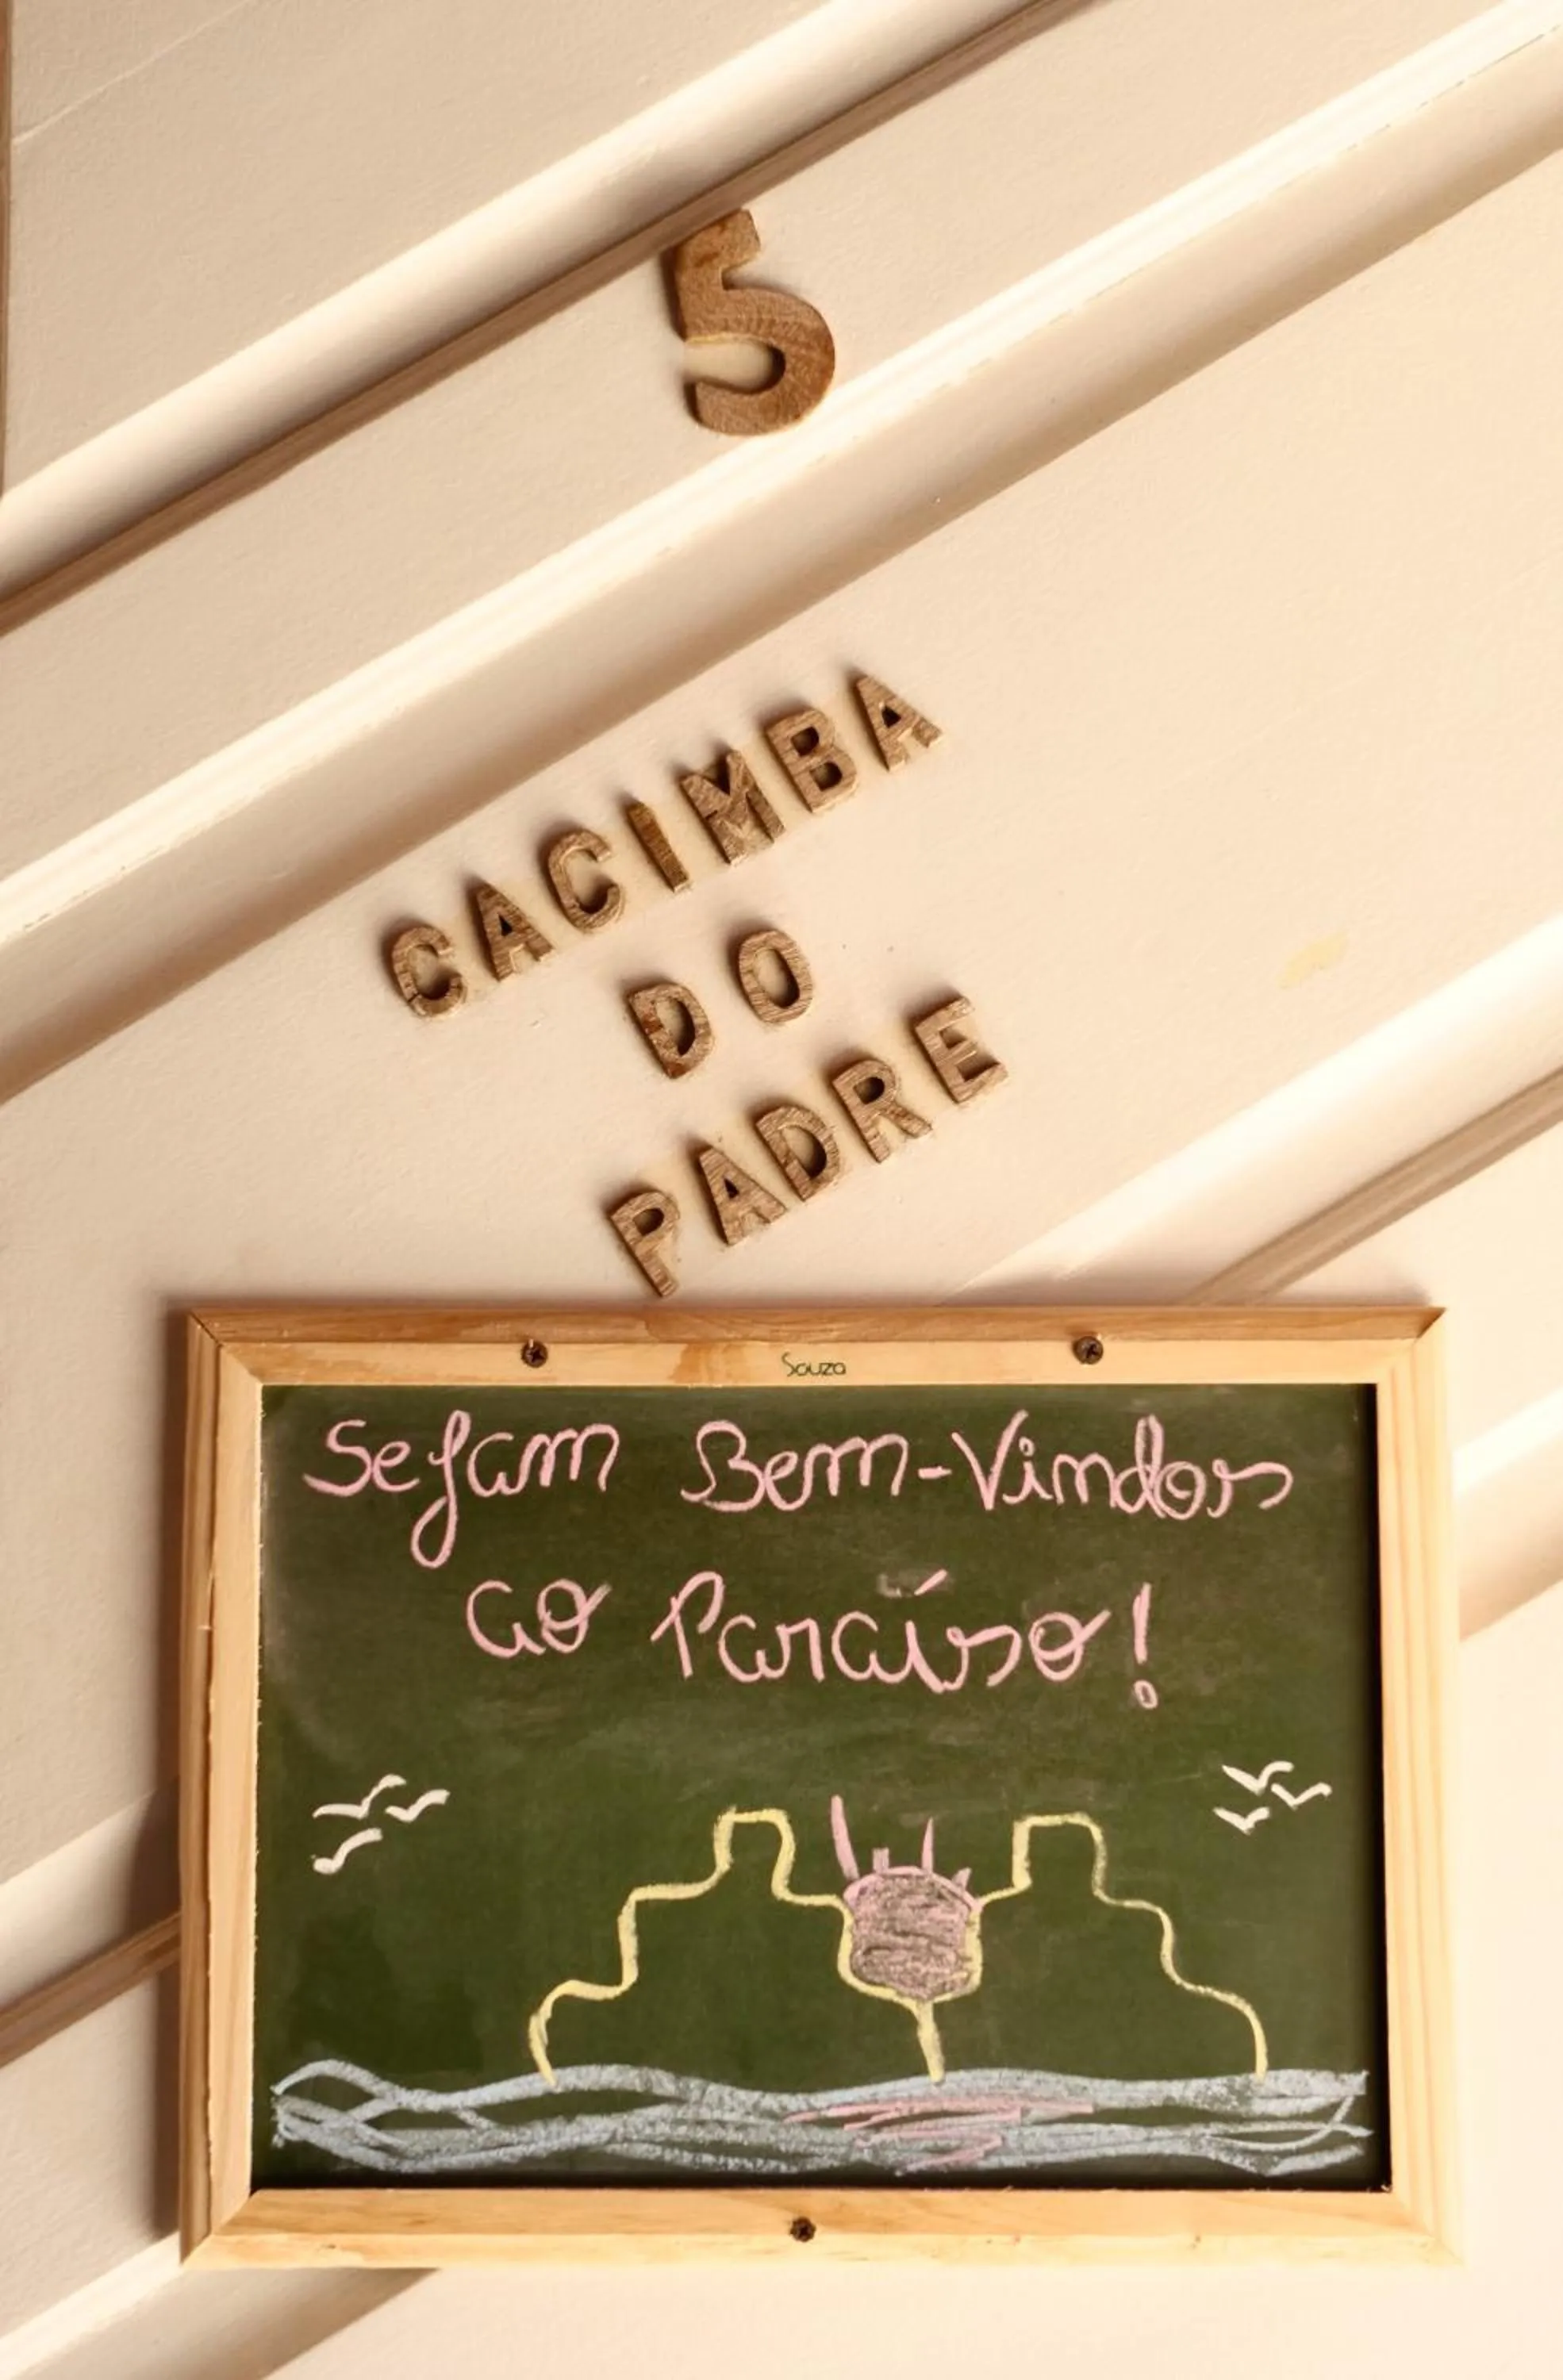 5
CACIMBA
DO
PADRE
Souza
Sejam Bem-Vindos
ao Paraíso!